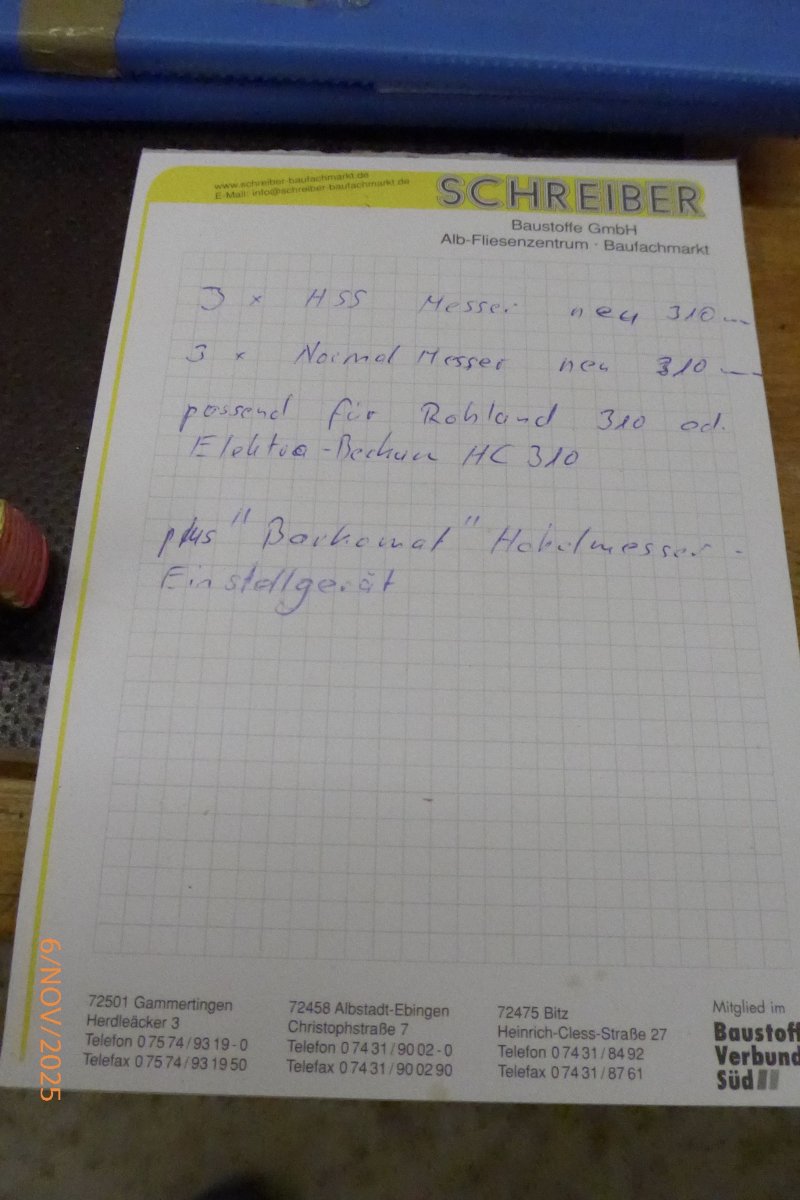 www.schreiber-baufachmarkt.de
E-Mail: info@schreiber-baufachmarkt.de
SCHREIBER
Baustoffe GmbH
Alb-Fliesenzentrum · Baufachmarkt
3 x HSS Messer neu 310 mm
3 x Normal Messer neu 310 mm
passend für Rohland 310 od.
Elektra-Beckum HC 310
plus "Barkomat" Hobelmesser-
Einstellgerät
72501 Gammertingen
Herdleäcker 3
Telefon 0 75 74 / 93 19 - 0
Telefax 0 75 74 / 93 19 50
72458 Albstadt-Ebingen
Christophstraße 7
Telefon 0 74 31 / 90 02 - 0
Telefax 0 74 31 / 90 02 90
72475 Bitz
Heinrich-Cless-Straße 27
Telefon 0 74 31 / 84 92
Telefax 0 74 31 / 87 61
Mitglied im
Baustoff
Verbund
Süd
6/NOV/2025